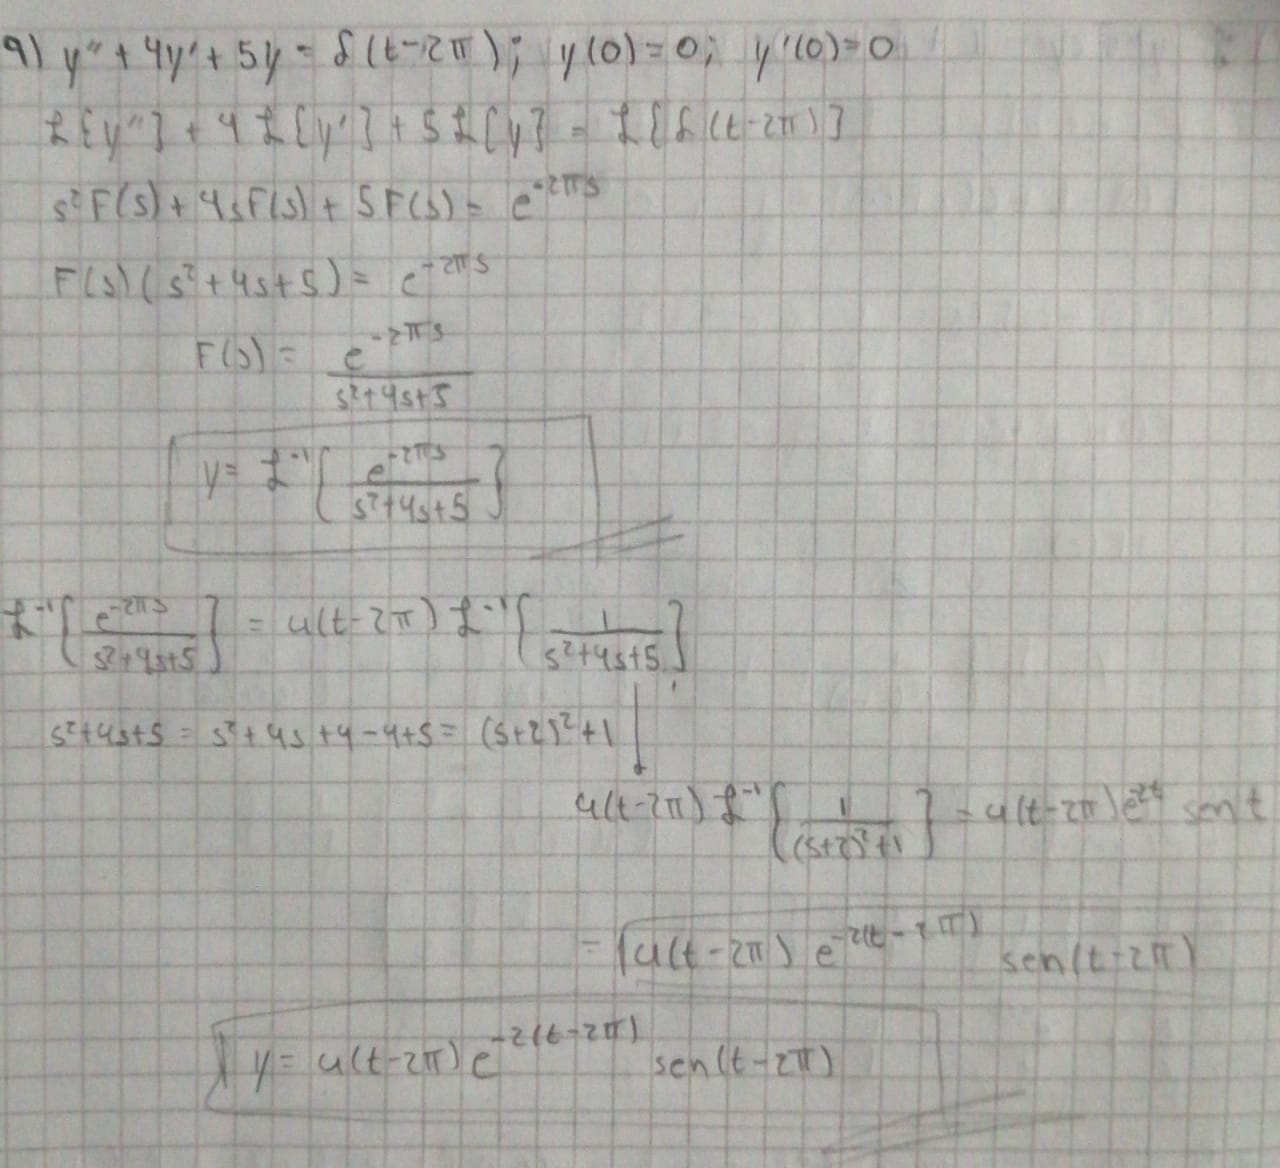 9) y'' + 4y' + 5y = δ(t-2π); y(0)=0; y'(0)=0
ℒ{y''} + 4ℒ{y'} + 5ℒ{y} = ℒ{δ(t-2π)}
s²F(s) + 4sF(s) + 5F(s) = e^{-2πs}
F(s)(s²+4s+5) = e^{-2πs}
F(s) = e^{-2πs}/(s²+4s+5)
y = ℒ⁻¹{e^{-2πs}/(s²+4s+5)}
ℒ⁻¹{e^{-2πs}/(s²+4s+5)} = u(t-2π) ℒ⁻¹{1/(s²+4s+5)}
s²+4s+5 = s²+4s+4-4+5 = (s+2)²+1
u(t-2π) ℒ⁻¹{1/((s+2)²+1)} = u(t-2π)e^{-2t} sen t
= u(t-2π) e^{-2(t-2π)} sen(t-2π)
y = u(t-2π)e^{-2(t-2π)} sen(t-2π)